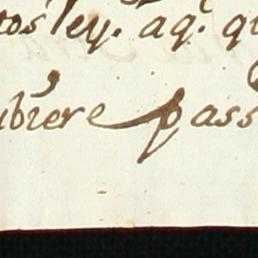 tos ley. aq. q
ubiere pass